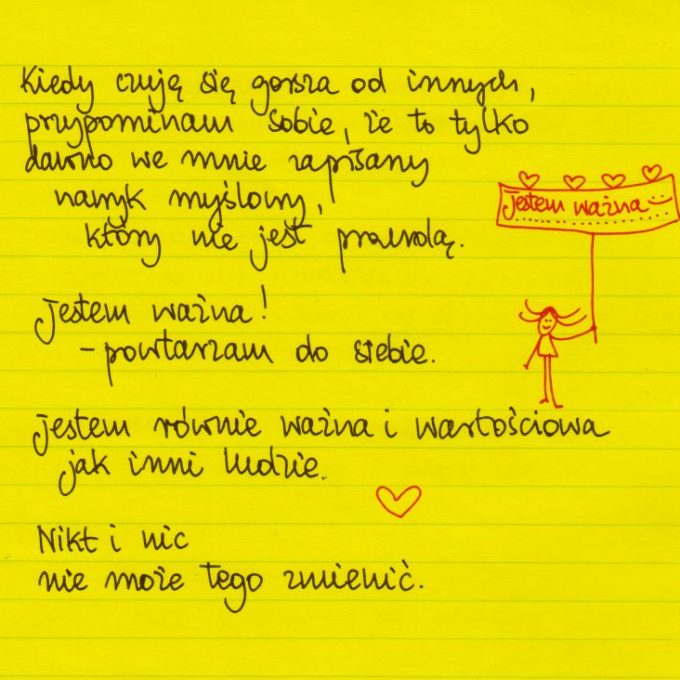 Kiedy czuję się gorsza od innych,
przypominam sobie, że to tylko
dawno we mnie zapisany
nawyk myślowy,
który nie jest prawdą.
Jestem ważna
Jestem ważna!
- powtarzam do siebie.
Jestem równie ważna i wartościowa
jak inni ludzie.
Nikt i nic
nie może tego zmienić.